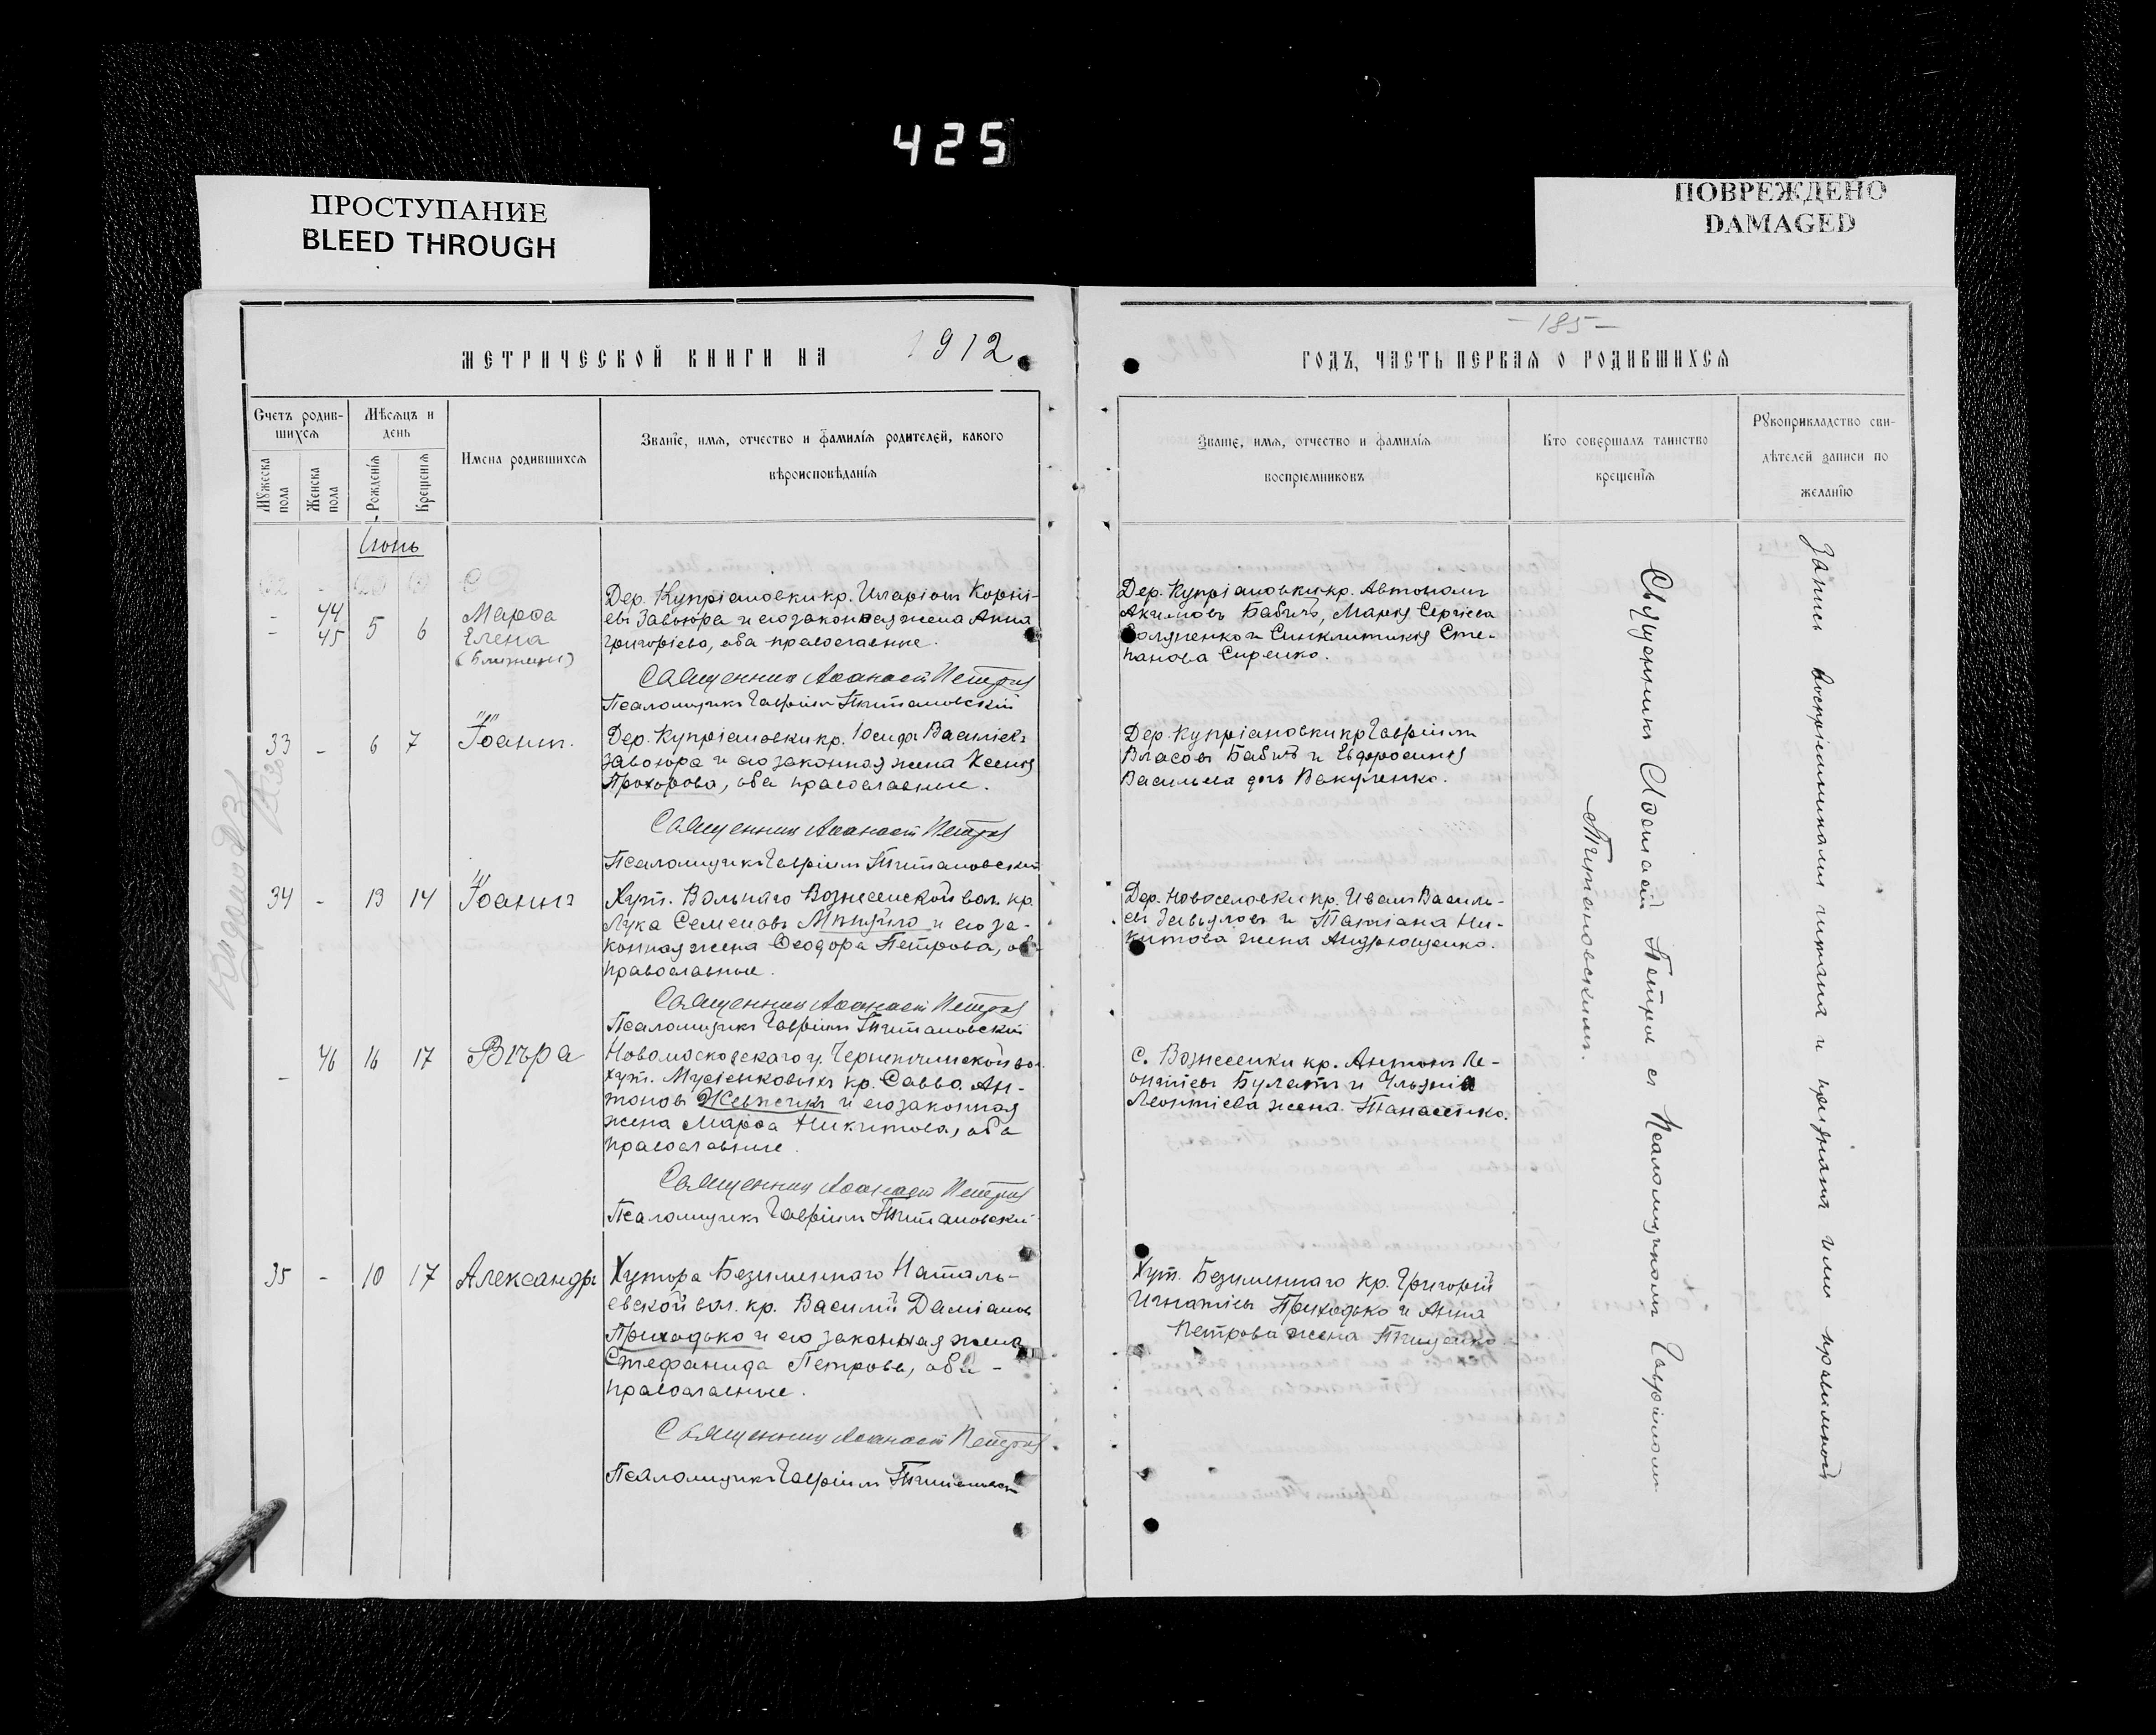 425
ПРОСТУПАНИЕ
BLEED THROUGH
ПОВРЕЖДЕНО
DAMAGED
МЕТРИЧЕСКОЙ КНИГИ НА 1912
Счетъ родив-
шихся
Мѣсяцъ и
день
Мужеска
пола
Женска
пола
Рожденія
Крещенія
Имена родившихся
Званіе, имя, отчество и фамилія родителей, какого
вѣроисповѣданія
Іюнь
- 44 5 6 Марѳа
- 45 Елена
(близнецы)
Дер. Купріановки кр. Иларіонъ Корніл-
евъ Завзюра и его законная жена Анна
Григоріева, оба православные.
Священникъ Аѳанасій Петровъ
Псаломщикъ Гавріилъ Титановскій
33 - 6 7 Іоаннъ.
Дер. Купріановки кр. Іосифъ Василіевъ
Завзюра и его законная жена Ксенія
Прохорова, оба православные.
Священникъ Аѳанасій Петровъ
Псаломщикъ Гавріилъ Титановскій
34 - 13 14 Іоаннъ
Хут. Вольнаго Вознесенской вол. кр.
Лука Семеновъ и его за-
конная жена Ѳеодора Петрова, оба
православные.
Священникъ Аѳанасій Петровъ
Псаломщикъ Гавріилъ Титановскій
- 46 16 17 Вѣра
Новомосковскаго у. вол.
хут. Мусіенковыхъ кр. Савва Ан-
тоновъ и его законная
жена Марѳа Никитова, оба
православные.
Священникъ Аѳанасій Петровъ
Псаломщикъ Гавріилъ Титановскій
35 - 10 17 Александръ
Хутора Безименнаго Наталь-
евской вол. кр. Василій Даміановъ
Приходько и его законная жена
Стефанида Петрова, оба -
православные.
Священникъ Аѳанасій Петровъ
Псаломщикъ Гавріилъ Титановскій
- 185 -
ГОДЪ, ЧАСТЬ ПЕРВАЯ О РОДИВШИХСЯ
Званіе, имя, отчество и фамилія
воспріемниковъ
Кто совершалъ таинство
крещенія
Рукоприкладство сви-
дѣтелей записи по
желанію
Дер. Купріановки кр. Автономъ
Акимовъ Бабичъ, Марія Сергіева
и Синклитикія Сте-
панова Сиренко.
Дер. Купріановки кр. Гавріилъ
Власовъ Бабичъ и Евфросинія
Васильева дочь Вакуленко.
Дер. Новоселовки кр. Иванъ Василь-
евъ и Татіана Ни-
китова жена Андрющенко.
с. Вознесенки кр. Антонъ Ле-
онтіевъ Булатъ и Ульянія
Леонтіева жена Танасенко.
Хут. Безименнаго кр. Григорій
Игнатіевъ Приходько и Анна
Петрова жена Тищенко
Священникъ Аѳанасій Петровъ съ Псаломщикомъ Гавріиломъ
Титановскимъ.
Запись воспріемниками читана и признана ими правильной